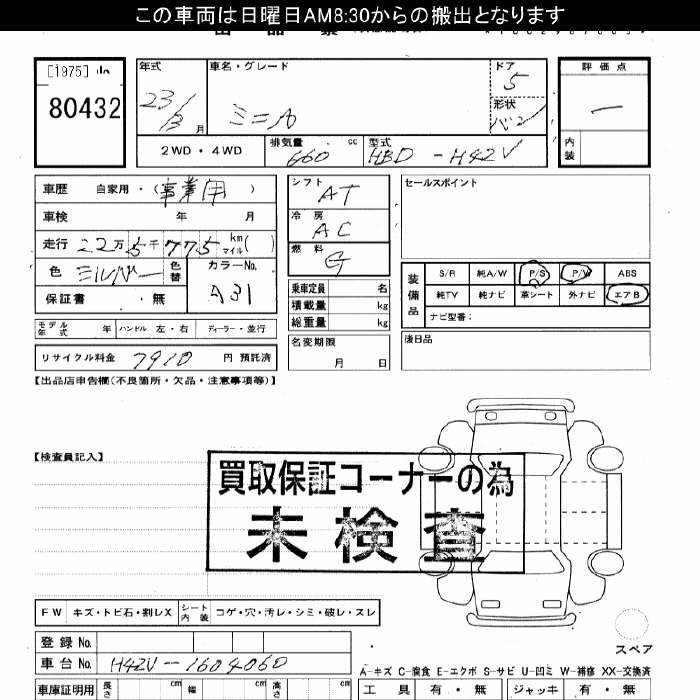 この車両は日曜日AM8:30からの搬出となります
[1975]
80432
年式
23/3月
車名・グレード
ミニA
ドア
5
形状
バン
評価点
―
内装
2WD・4WD
排気量 cc
660
型式
HBD-H42V
車歴 自家用・(事業用)
車検 年 月
走行 22万5千775 km マイル( )
色 シルバー 色替
カラーNo.
A31
保証書 ・無
モデル年式 年 ハンドル 左・右 ディーラー・並行
リサイクル料金 7910 円 預託済
シフト
AT
冷房
AC
燃料
G
乗車定員 名
積載量 kg
総重量 kg
名変期限
月 日
セールスポイント
装備品
S/R 純A/W P/S P/W ABS
純TV 純ナビ 革シート 外ナビ エアB
ナビ型番:
後日品
【出品店申告欄(不良箇所・欠品・注意事項等)】
【検査員記入】
買取保証コーナーの為
未検査
FW キズ・トビ石・割レX シート内装 コゲ・穴・汚レ・シミ・破レ・スレ
登録No.
車台No. H42V-1604060
スペア
A-キズ C-腐食 E-エクボ S-サビ U-凹ミ W-補修 XX-交換済
車庫証明用 長さ cm 幅 cm 高さ cm
工具 有・無 ジャッキ 有・無